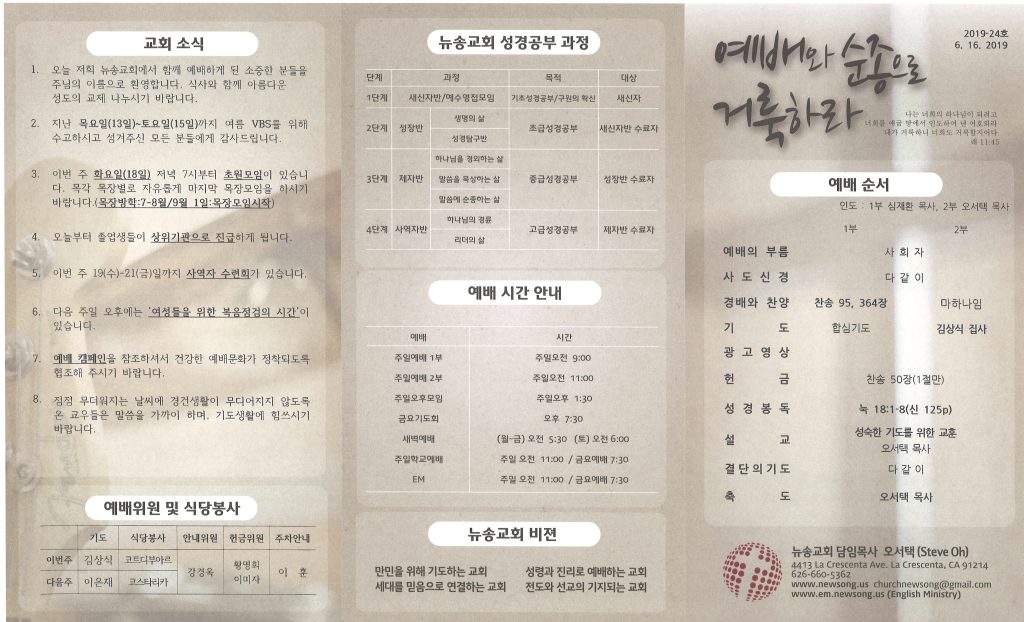 교회 소식
1. 오늘 저희 뉴송교회에서 함께 예배하게 된 소중한 분들을
주님의 이름으로 환영합니다. 식사와 함께 아름다운
성도의 교제 나누시기 바랍니다.
2. 지난 목요일(13일)~토요일(15일)까지 여름 VBS를 위해
수고하시고 섬겨주신 모든 분들에게 감사드립니다.
3. 이번 주 화요일(18일) 저녁 7시부터 초원모임이 있습니
다. 목장 목장별로 자유롭게 마지막 목장모임을 하시기
바랍니다.(목장방학:7-8월/9월 1일:목장모임시작)
4. 오늘부터 졸업생들이 상위기관으로 진급하게 됩니다.
5. 이번 주 19(수)-21(금)일까지 사역자 수련회가 있습니다.
6. 다음 주일 오후에는 '여성들을 위한 복음점검의 시간'이
있습니다.
7. 예배 캠페인을 참조하셔서 건강한 예배문화가 정착되도록
협조해 주시기 바랍니다.
8. 점점 무더워지는 날씨에 경건생활이 무디어지지 않도록
온 교우들은 말씀을 가까이 하며, 기도생활에 힘쓰시기
바랍니다.
예배위원 및 식당봉사
기도 식당봉사 안내위원 헌금위원 주차안내
이번주 김상식 코트디부아르 강경옥 황명희 이 훈
다음주 이은재 코스타리카 이미자
뉴송교회 성경공부 과정
단계 과정 목적 대상
1단계 새신자반/예수영접모임 기초성경공부/구원의 확신 새신자
2단계 성장반 생명의 삶 초급성경공부 새신자반 수료자
성경탐구반
3단계 제자반 하나님을 경외하는 삶 중급성경공부 성장반 수료자
말씀을 묵상하는 삶
말씀에 순종하는 삶
4단계 사역자반 하나님의 경륜 고급성경공부 제자반 수료자
리더의 삶
예배 시간 안내
예배 시간
주일예배 1부 주일오전 9:00
주일예배 2부 주일오전 11:00
주일오후모임 주일오후 1:30
금요기도회 오후 7:30
새벽예배 (월-금) 오전 5:30 (토) 오전 6:00
주일학교예배 주일 오전 11:00 / 금요예배 7:30
EM 주일 오전 11:00 / 금요예배 7:30
뉴송교회 비전
만민을 위해 기도하는 교회 성령과 진리로 예배하는 교회
세대를 믿음으로 연결하는 교회 전도와 선교의 기지되는 교회
2019-24호
6. 16. 2019
예배와 순종으로
거룩하라
나는 너희의 하나님이 되려고
너희를 애굽 땅에서 인도하여 낸 여호와라
내가 거룩하니 너희도 거룩할지어다
레 11:45
예배 순서
인도 : 1부 심재환 목사, 2부 오서택 목사
1부 2부
예배의 부름 사 회 자
사 도 신 경 다 같 이
경배와 찬양 찬송 95, 364장 마하나임
기 도 합심기도 김상식 집사
광 고 영 상
헌 금 찬송 50장(1절만)
성 경 봉 독 눅 18:1-8(신 125p)
설 교 성숙한 기도를 위한 교훈
오서택 목사
결단의기도 다 같 이
축 도 오서택 목사
뉴송교회 담임목사 오서택 (Steve Oh)
4413 La Crescenta Ave. La Crescenta, CA 91214
626-660-5362
www.newsong.us churchnewsong@gmail.com
www.em.newsong.us (English Ministry)